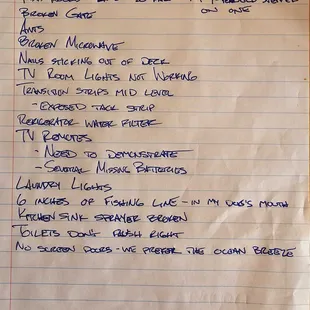 ON ONE
BROKEN GATE
ANTS
BROKEN MICROWAVE
NAILS STICKING OUT OF DECK
TV ROOM LIGHTS NOT WORKING
TRANSITION STRIPS MID LEVEL
- EXPOSED TACK STRIP
REFRIGERATOR WATER FILTER
TV REMOTES
- NEED TO DEMONSTRATE
- SEVERAL MISSING BATTERIES
LAUNDRY LIGHTS
6 INCHES OF FISHING LINE - IN MY DOG'S MOUTH
KITCHEN SINK SPRAYER BROKEN
TOILETS DON'T FLUSH RIGHT
NO SCREEN DOORS - WE PREFER THE OCEAN BREEZE